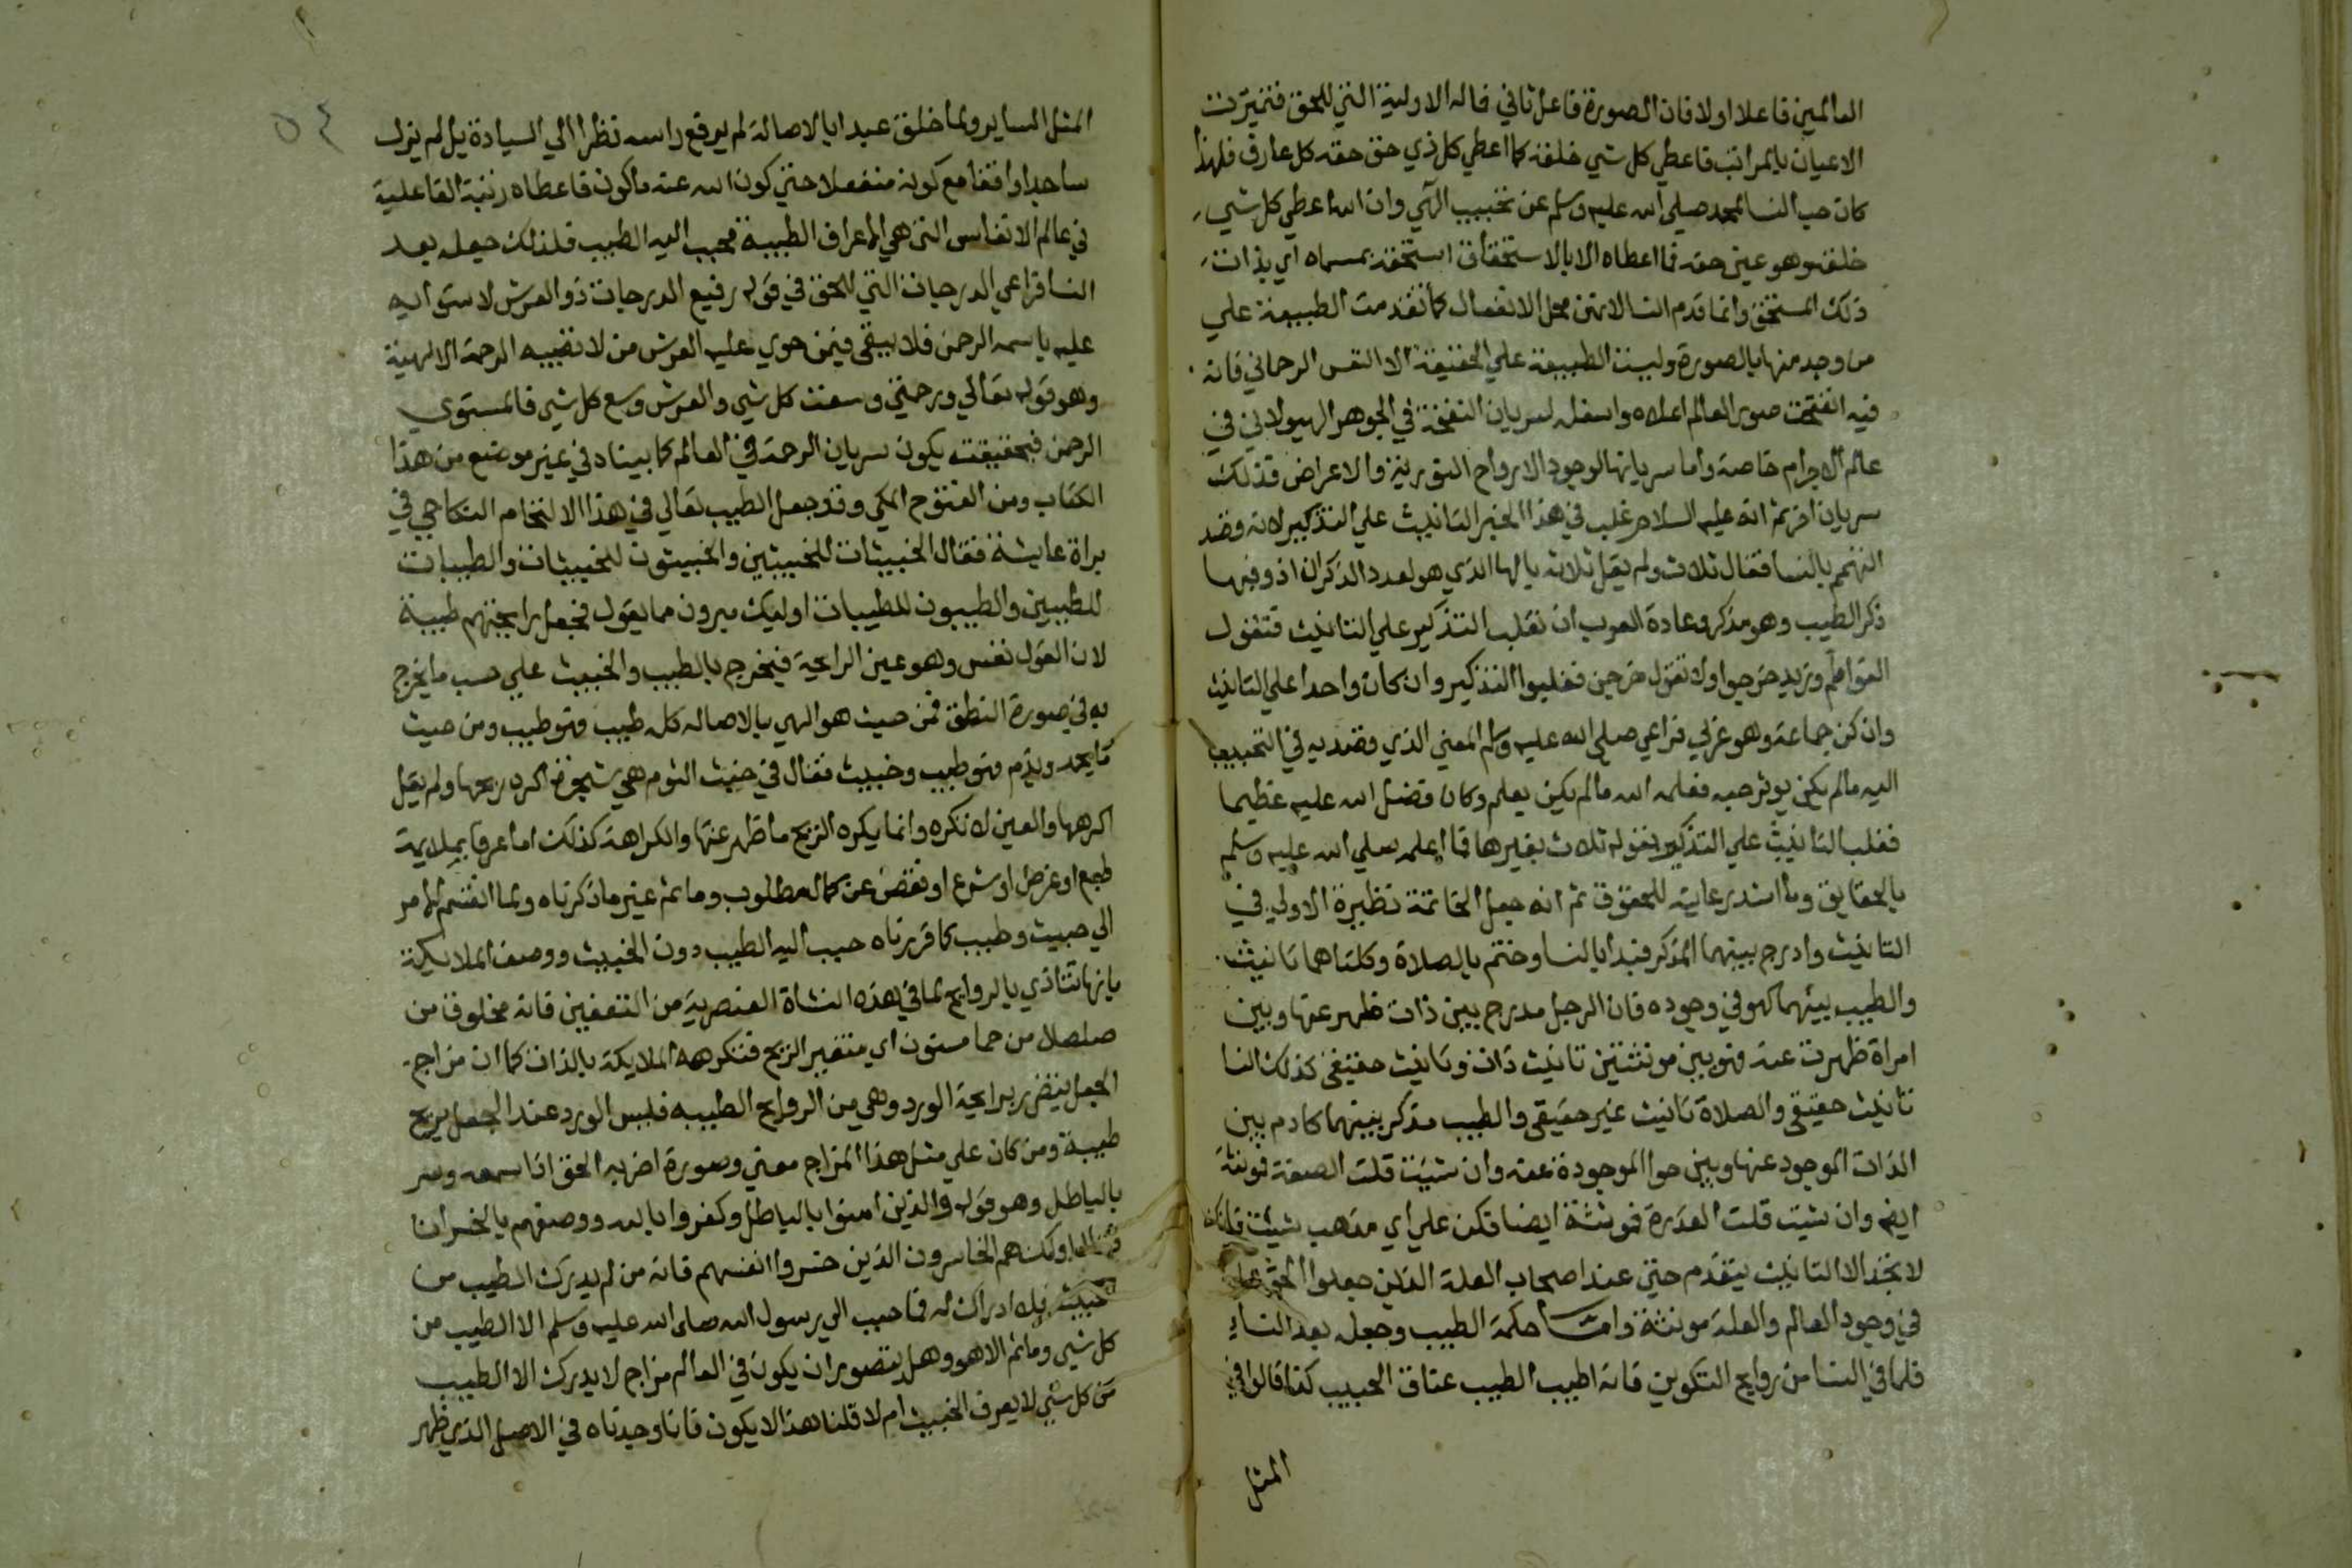 العالمين فاعلا اولا فان الصورة فاعل ثاني فاله الاولية التي للحق فتميزت
الاعيان بالمراتب فاعطي كل شي خلقه كما اعطي كل ذي حق حقه كل عارف فلهذا
كان حب النسا لمحمد صلى الله عليه وسلم عن تحبيب الهي وان الله اعطي كل شي
خلقه وهو عين حقه فما اعطاه الا بالاستحقاق استحقه بمسماه اي بذات
ذلك المستحق وانما قدم النسا لانهن محل الانفعال كما تقدمت الطبيعة علي
من وجد منها بالصورة وليست الطبيعة علي الحقيقة الا النفس الرحماني فانه
فيه انفتحت صور العالم اعلاه واسفله لسريان النفخة في الجوهر الهيولاني في
عالم الاجرام خاصة واما سريانها لوجود الارواح النورية والاعراض فذلك
سريان اخر ثم انه عليه السلام غلب في هذا الخبر التانيث علي التذكير لانه قصد
التهمم بالنسا فقال ثلاث ولم يقل ثلاثه بالها الذي هو لعدد الذكران اذ وفيها
ذكر الطيب وهو مذكر وعادة العرب ان تغلب التذكير علي التانيث فتقول
الفواطم وزيد خرجوا ولا تقول خرجن فغلبوا التذكير وان كان واحدا علي التانيث
وان كن جماعة وهو عربي فراعي صلى الله عليه وسلم المعني الذي قصد به في التحبيب
اليه مالم يكن يوثر حبه فعلمه الله مالم يكن يعلم وكان فضل الله عليه عظيما
فغلب التانيث علي التذكير بقوله ثلاث بغير ها فما اعلمه صلي الله عليه وسلم
بالحقايق وما اشد رعايته للحقوق ثم انه جعل الخاتمة نظيرة الاولي في
التانيث وادرج بينهما المذكر فبدا بالنسا وختم بالصلاة وكلتاهما تانيث
والطيب بينهما كهو في وجوده فان الرجل مدرج بين ذات ظهر عنها وبين
امراة ظهرت عنه فهو بين مونثتين تانيث ذات وتانيث حقيقي كذلك النسا
تانيث حقيقي والصلاة تانيث غير حقيقي والطيب مذكر بينهما كادم بين
الذات الموجود عنها وبين حوا الموجودة عنه وان شيت قلت الصفة فمونثة
ايضا وان شيت قلت القدرة فمونثة ايضا فكن علي اي مذهب شيت فانك
لا تجد الا التانيث يتقدم حتي عند اصحاب العلة الذين جعلوا الحق علة
في وجود العالم والعلة مونثة واما حكمة الطيب وجعله بعد النساء
فلما في النسا من روايح التكوين فانه اطيب الطيب عناق الحبيب كذا قالوا في
المثل
٥٤
المثل الساير ولما خلق عبدا بالاصالة لم يرفع راسه نظرا الي السيادة بل لم يزل
ساجدا واقفا مع كونه منفعلا حتي كون الله عنه ما كون فاعطاه رتبة الفاعلية
في عالم الانفاس التي هي الاعراف الطيبة فحبب اليه الطيب فلذلك جعله بعد
النسا فراعي الدرجات التي للحق في قوله رفيع الدرجات ذو العرش لاستوايه
عليه باسمه الرحمن فلا يبقى فيمن حوي عليه العرش من لا تصيبه الرحمة الالهية
وهو قوله تعالي ورحمتي وسعت كل شي والعرش وسع كل شي فالمستوي
الرحمن فبحقيقته يكون سريان الرحمة في العالم كما بيناه في غير موضع من هذا
الكتاب ومن الفتوح المكي وقد جعل الطيب تعالي في هذا الالتحام النكاحي في
براة عايشة فقال الخبيثات للخبيثين والخبيثون للخبيثات والطيبات
للطيبين والطيبون للطيبات اوليك مبرون مما يقول فجعل رايحتهم طيبة
لان القول نفس وهو عين الرايحة فيخرج بالطيب والخبيث علي حسب ما يخرج
به في صورة النطق فمن حيث هو الهي بالاصاله كله طيب فهو طيب ومن حيث
ما يحمد ويذم فهو طيب وخبيث فقال في خبث الثوم هي شجرة اكره ريحها ولم يقل
اكرهها والعين لا تكره وانما يكره الريح ما ظهر عنها والكراهة كذلك اما عرفا بملايمة
طبع او غرض او شرع او نقص عن كمال مطلوب وما ثم غير ما ذكرناه ولما انقسم الامر
الي خبيث وطيب كما قررناه حبب اليه الطيب دون الخبيث ووصف الملايكة
بانها تتاذي بالروايح لما في هذه النشاة العنصرية من التعفين فانه مخلوق من
صلصال من حما مسنون اي متغير الريح فتكرهه الملايكة بالذات كما ان مزاج
الجعل يتضرر برايحة الورد وهي من الروايح الطيبه فليس الورد عند الجعل بريح
طيبة ومن كان علي مثل هذا المزاج معني وصورة اضر به الحق اذا سمعه وسر
بالباطل وهو قوله والذين امنوا بالباطل وكفروا بالله ووصفهم بالخسران
فقال اوليك هم الخاسرون الذين خسروا انفسهم فانه من لم يدرك الطيب من
الخبيث فلا ادراك له فما حبب الي رسول الله صلى الله عليه وسلم الا الطيب من
كل شي وما ثم الا هو وهل يتصور ان يكون في العالم مزاج لا يدرك الا الطيب
من كل شي لا يعرف الخبيث ام لا قلنا هذا لا يكون فانا وجدناه في الاصل الذي ظهر